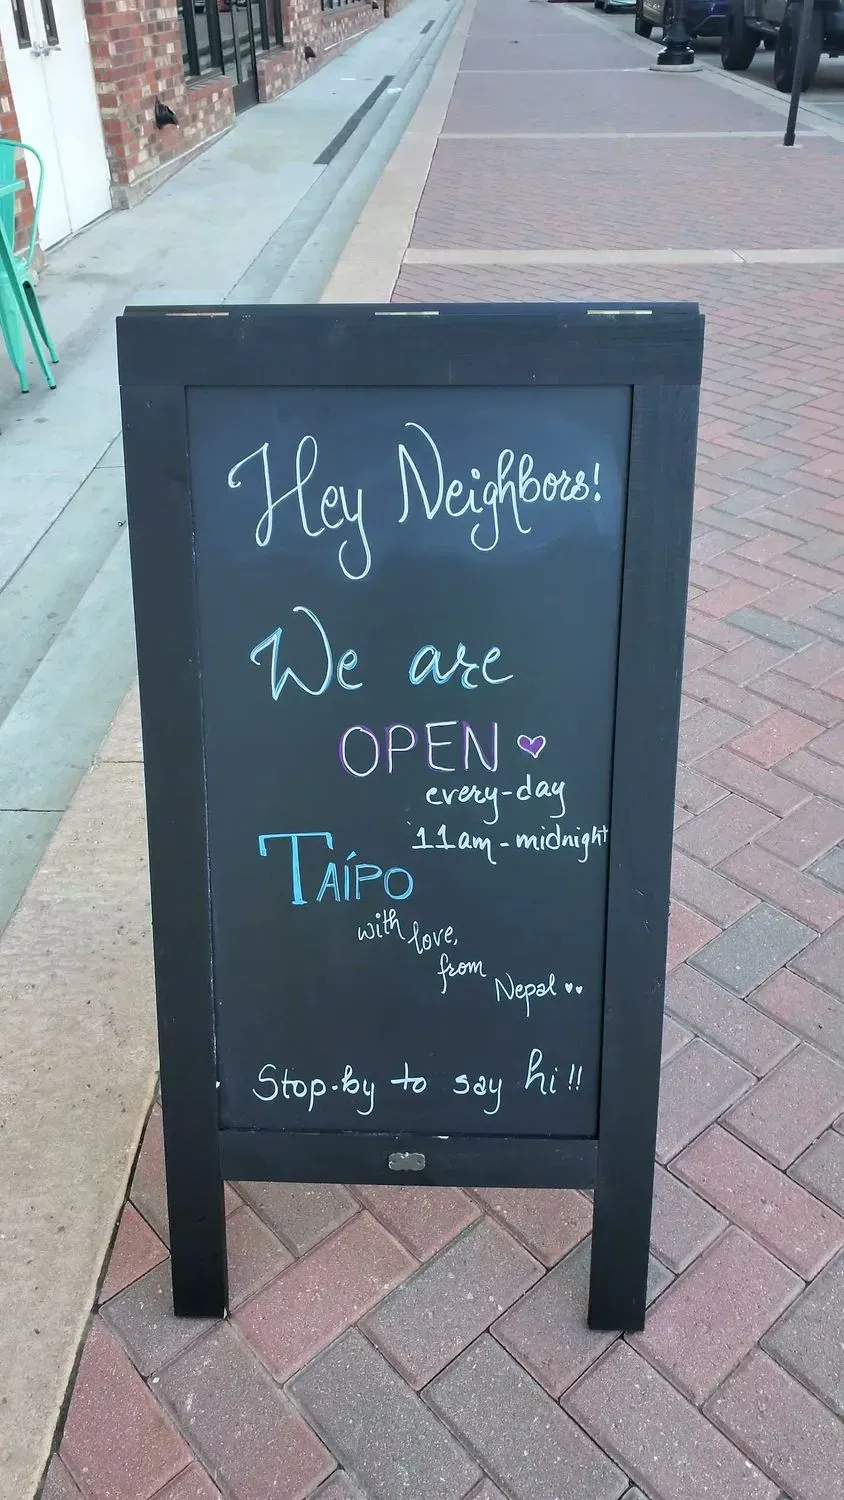 Hey Neighbors!
We are
OPEN
every-day
11am - midnight
TAÍPO
with love,
from
Nepal
Stop-by to say hi!!